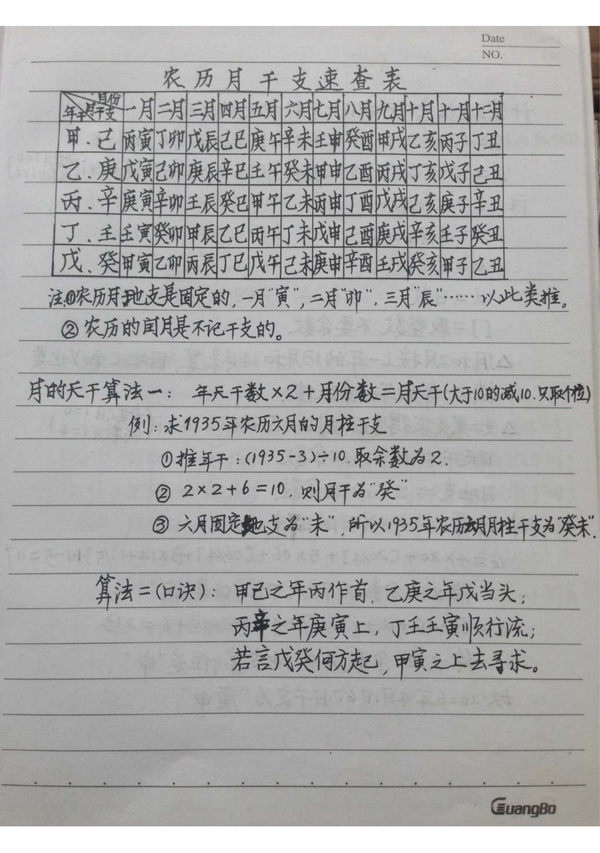 Date
NO.
农历月干支速查表
年干 月干支 月份 一月 二月 三月 四月 五月 六月 七月 八月 九月 十月 十一月 十二月
甲、己 丙寅 丁卯 戊辰 己巳 庚午 辛未 壬申 癸酉 甲戌 乙亥 丙子 丁丑
乙、庚 戊寅 己卯 庚辰 辛巳 壬午 癸未 甲申 乙酉 丙戌 丁亥 戊子 己丑
丙、辛 庚寅 辛卯 壬辰 癸巳 甲午 乙未 丙申 丁酉 戊戌 己亥 庚子 辛丑
丁、壬 壬寅 癸卯 甲辰 乙巳 丙午 丁未 戊申 己酉 庚戌 辛亥 壬子 癸丑
戊、癸 甲寅 乙卯 丙辰 丁巳 戊午 己未 庚申 辛酉 壬戌 癸亥 甲子 乙丑
注:①农历月地支是固定的,一月"寅",二月"卯",三月"辰"……以此类推。
②农历的闰月是不记干支的。
月的天干算法一: 年天干数×2+月份数=月天干(大于10的减10.只取个位)
例:求1935年农历六月的月柱干支
①推年干:(1935-3)÷10.取余数为2.
② 2×2+6=10.则月干为"癸"
③ 六月固定地支为"未".所以1935年农历六月月柱干支为"癸未".
算法二(口诀): 甲己之年丙作首.乙庚之年戊当头;
丙辛之年庚寅上,丁壬壬寅顺行流;
若言戊癸何方起,甲寅之上去寻求。
GuangBo